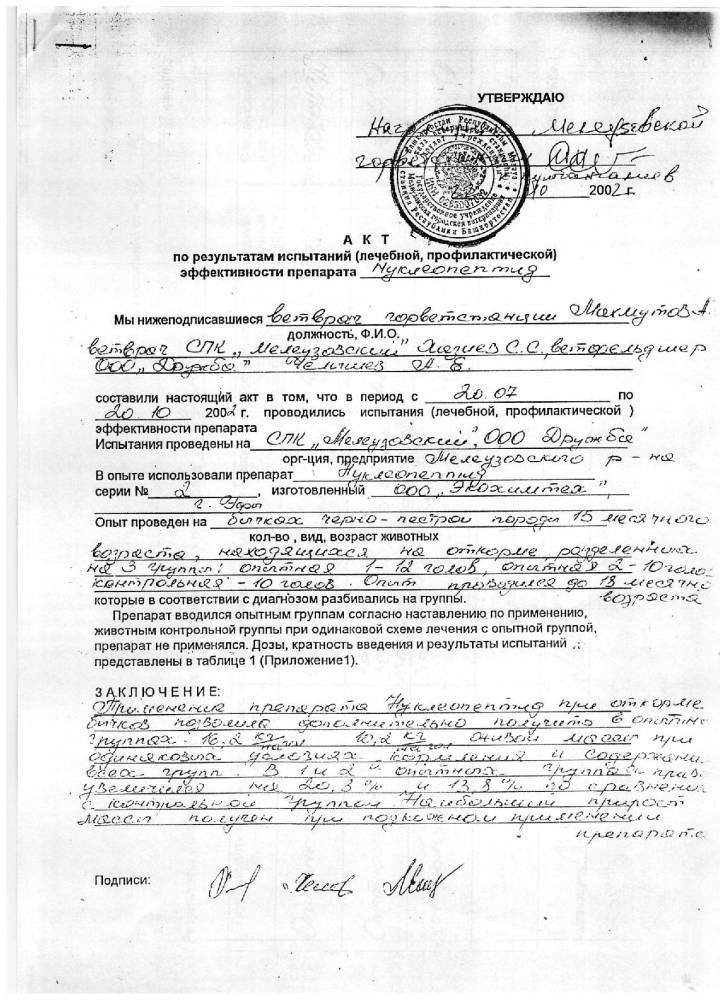 УТВЕРЖДАЮ
Нач. Мелеузовской
горвет
10 2002 г.
А К Т
по результатам испытаний (лечебной, профилактической)
эффективности препарата Нуклеопептид
Мы нижеподписавшиеся ветврач горветстанции Махмутов А.
должность, Ф.И.О.
ветврач СПК „Мелеузовский" С.С., ветфельдшер
ООО „Дружба" А.
составили настоящий акт в том, что в период с 20.07 по
20.10 2002 г. проводились испытания (лечебной, профилактической )
эффективности препарата
Испытания проведены на СПК „Мелеузовский", ООО Дружба"
орг-ция, предприятие Мелеузовского р-на
В опыте использовали препарат Нуклеопептид
серии № 2, изготовленный ООО „Экохимтех",
г. Уфы
Опыт проведен на бычках черно-пестрой породы 15 месячного
кол-во , вид, возраст животных
возраста, находящихся на откорме, разделенных
на 3 группы: опытная 1-12 голов, опытная 2-10 голо
контрольная - 10 голов. Опыт проводился до 18 месячно
которые в соответствии с диагнозом разбивались на группы. возраста
Препарат вводился опытным группам согласно наставлению по применению,
животным контрольной группы при одинаковой схеме лечения с опытной группой,
препарат не применялся. Дозы, кратность введения и результаты испытаний
представлены в таблице 1 (Приложение1).
З А К Л Ю Ч Е Н И Е:
Применение препарата Нуклеопептид при откорме
бычков позволила дополнительно получить в опытн
группах 16,2 кг 10,2 кг живой массы при
одинаковых условиях кормления и содержани
всех групп. В 1 и 2 опытных группах
увеличился на 20,3% и 13,8% по сравнению
с контрольной группой. Наибольший прирост
массы получен при подкожном применении
препарата
Подписи: